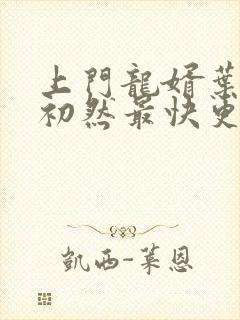 上門龍婿葉
初然最快更
凱西-葉恩